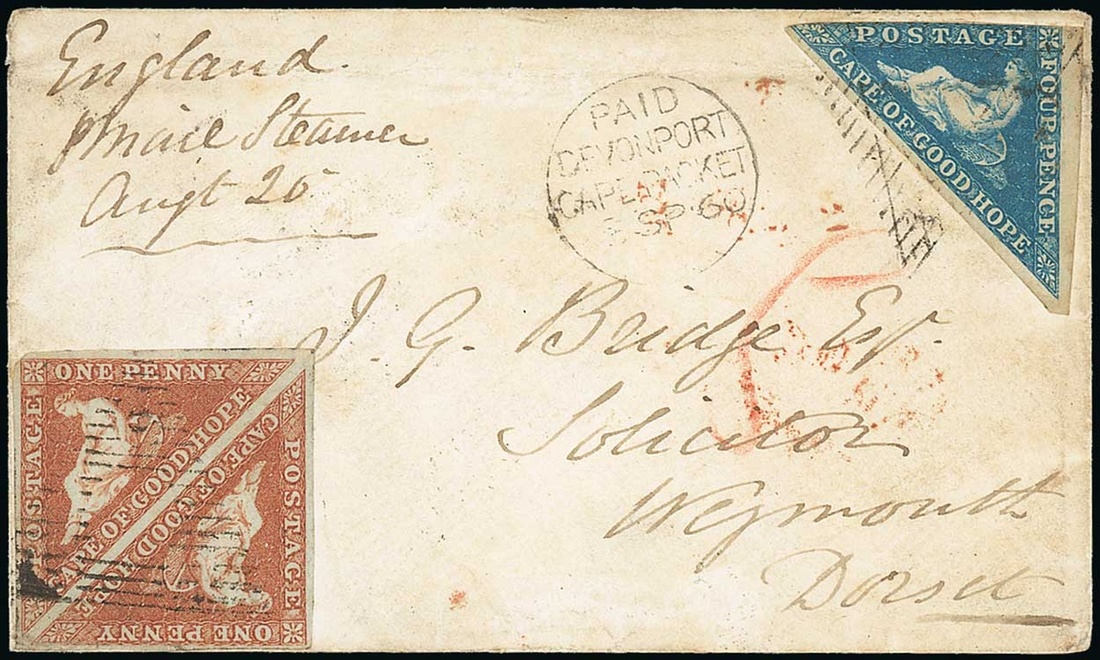 England.
p Mail Steamer
Augt 20
PAID
DEVONPORT
CAPE PACKET
SP 60
POSTAGE
FOUR PENCE
CAPE OF GOOD HOPE
J. G. Bridge Esqr.
Solicitor
Weymouth
Dorset
ONE PENNY
POSTAGE
CAPE OF GOOD HOPE
CAPE OF GOOD HOPE
POSTAGE
ONE PENNY